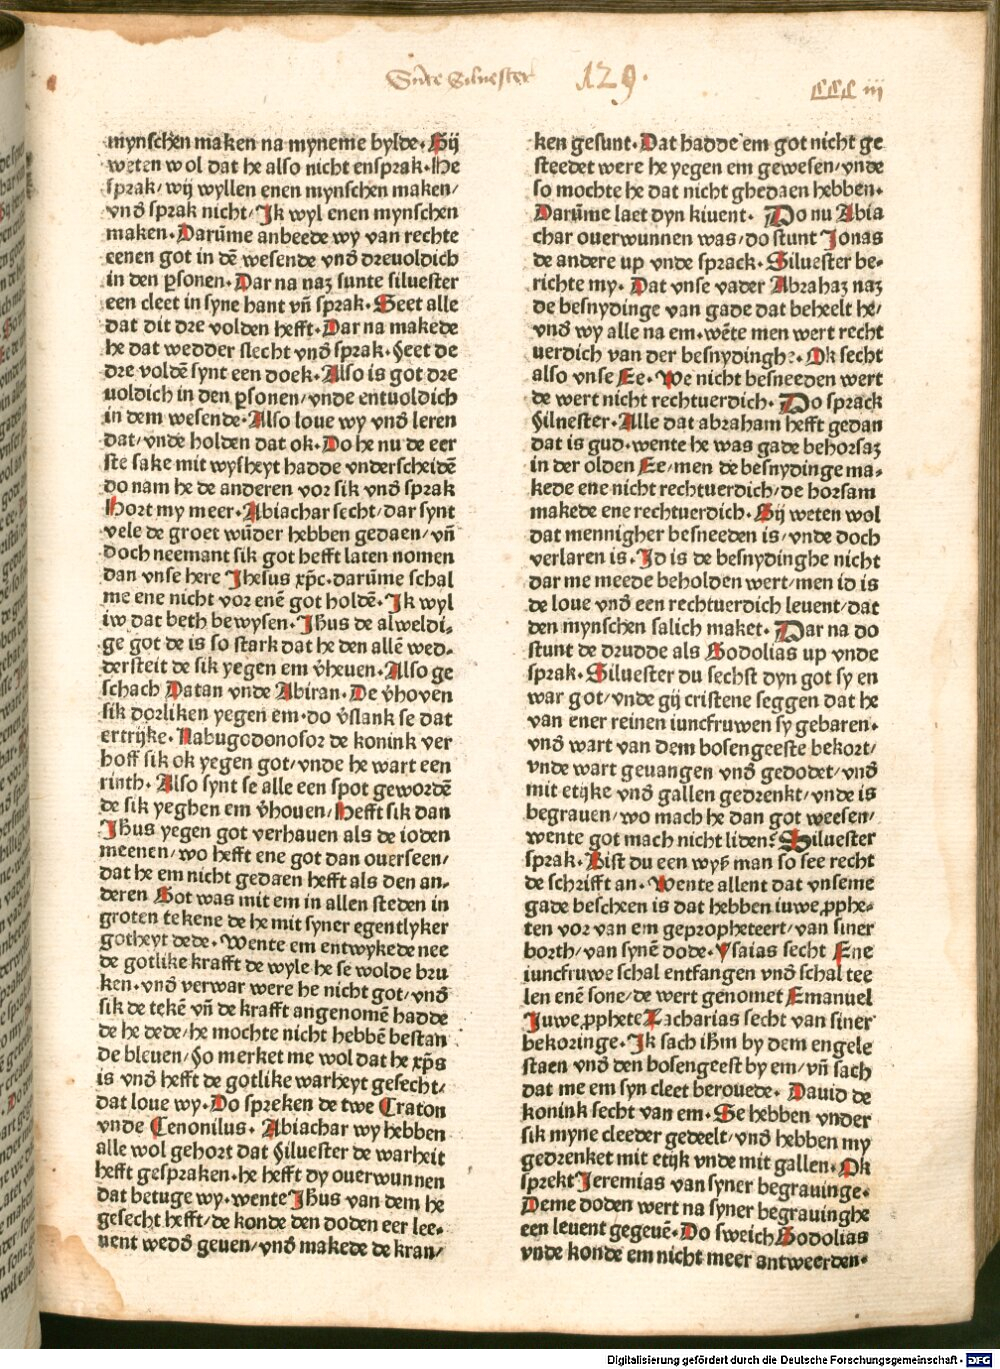 Sūte Siluester 129. CCC iij
mynschen maken na myneme bylde. Gij
weten wol dat he also nicht ensprak. He
sprak/ wij wyllen enen mynschen maken/
vnd̄ sprak nicht/ Ik wyl enen mynschen
maken. Darūme anbeede wy van rechte
eenen got in dē wesende vnd̄ dreuoldich
in den ꝑsonen. Dar na naʒ sunte siluester
een cleet in syne hant vn̄ sprak. Seet alle
dat dit dre volden hefft. Dar na makede
he dat wedder slecht vnd̄ sprak. Seet de
dre voldē synt een doek. Also is got dre
uoldich in den ꝑsonen/ vnde entuoldich
in dem wesende. Also loue wy vnd̄ leren
dat/ vnde holden dat ok. Do he nu de eer
ste sake mit wysheyt hadde vnderscheidē
do nam he de anderen vor sik vnd̄ sprak
Hort my meer. Abiachar secht/ dar synt
vele de groet wūder hebben gedaen/ vn̄
doch neemant sik got hefft laten nomen
dan vnse here Jhesus xp̄c. darūme schal
me ene nicht vor enē got holdē. Ik wyl
iw dat beth bewysen. Jh̄us de alweldi⸗
ge got de is so stark dat he den allē wed⸗
dersteit de sik yegen em v̄heuen. Also ge
schach Datan vnde Abiran. De v̄hoven
sik dorliken yegen em. do v̄slank se dat
ertrijke. Nabugodonosor de konink ver
hoff sik ok yegen got/ vnde he wart een
rinth. Also synt se alle een spot gewordē
de sik yeghen em v̄houen/ Hefft sik dan
Jh̄us yegen got verhauen als de ioden
meenen/ wo hefft ene got dan overseen/
dat he em nicht gedaen hefft als den an⸗
deren Got was mit em in allen steden in
groten tekene de he mit syner egentlyker
gotheyt dede. Wente em entwykede nee
de gotlike krafft de wyle he se wolde bru
ken. vnd̄ verwar were he nicht got/ vnd̄
sik de tekē vn̄ de krafft angenomē hadde
de he dede/ he mochte nicht hebbē bestan
de bleuen/ So merket me wol dat he xp̄s
is vnd̄ hefft de gotlike warheyt gesecht/
dat loue wy. Do spreken de twe Craton
vnde Cenonilus. Abiachar wy hebben
alle wol gehort dat Siluester de warheit
hefft gespraken. he hefft dy ouerwunnen
dat betuge wy. wente Jh̄us van dem he
gesecht hefft/ de konde den doden eer lee⸗
uent wedd̄ geuen/ vnd̄ makede de kran/
ken gesunt. Dat hadde em got nicht ge
steedet were he yegen em gewesen/ vnde
so mochte he dat nicht ghedaen hebben.
Darūme laet dyn kiuent. Do nu Abia
char ouerwunnen was/ do stunt Jonas
de andere up vnde sprack. Siluester be⸗
richte my. Dat vnse vader Abrahaʒ naʒ
de besnydinge van gade dat beheelt he/
vnd̄ wy alle na em. wēte men wert recht
uerdich van der besnydinghe. Ok secht
also vnse Ee. We nicht besneeden wert
de wert nicht rechtuerdich. Do sprack
Siluester. Alle dat abraham hefft gedan
dat is gud. wente he was gade behorsaʒ
in der olden Ee/ men de besnydinge ma⸗
kede ene nicht rechtuerdich/ de horsam
makede ene rechtuerdich. Gij weten wol
dat mennigher besneeden is/ vnde doch
verlaren is. Id is de besnydinghe nicht
dar me meede beholden wert/ men id is
de loue vnd̄ een rechtuerdich leuent/ dat
den mynschen salich maket. Dar na do
stunt de drudde als Godolias up vnde
sprak. Siluester du sechst dyn got sy en
war got/ vnde gij cristene seggen dat he
van ener reinen iuncfruwen sy gebaren.
vnd̄ wart van dem bosengeeste bekort/
vnde wart geuangen vnd̄ gedodet/ vnd̄
mit etijke vnd̄ gallen gedrenkt/ vnde is
begrauen/ wo mach he dan got weesen/
wente got mach nicht liden? Siluester
sprak. Bist du een wyß man so see recht
de schrifft an. Wente allent dat vnseme
gade bescheen is dat hebben iuwe ꝓphe⸗
ten vor van em gepropheteert/ van siner
borth/ van synē dode. Ysaias secht Ene
iuncfruwe schal entfangen vnd̄ schal tee
len enē sone/ de wert genomet Emanuel
Juwe ꝓphete Zacharias secht van siner
bekoringe. Ik sach ih̄m by dem engele
staen vnd̄ den bosengeest by em/ vn̄ sach
dat me em syn cleet berouede. Dauid de
konink secht van em. Se hebben vnder
sik myne cleeder gedeelt/ vnd̄ hebben my
gedrenket mit etijk vnde mit gallen. Ok
sprekt Jeremias van syner begrauinge.
Deme doden wert na syner begrauinghe
een leuent gegeuē. Do sweich Godolias
vnde konde em nicht meer antweerden.
Digitalisierung gefördert durch die Deutsche Forschungsgemeinschaft - DFG